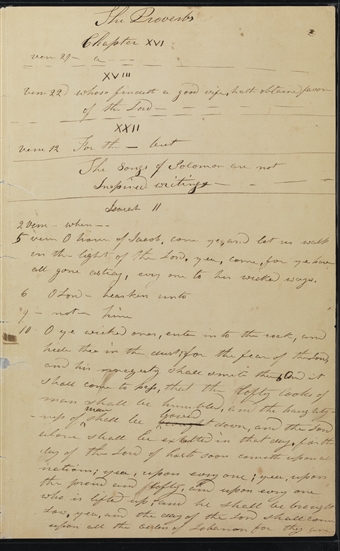 The Proverbs
Chapter XVI
verse 29 — a —
XVIII
verse 22d whoso findeth a good wife, hath obtained favor
of the Lord —
XXII
verse 12 For the — but
The Songs of Solomon are not
Inspired writings —
Isaiah II
2 verse — when —
5 verse O house of Jacob, come ye, and let us walk
in the light of the Lord, yea, come, for ye have
all gone astray, every one to his wicked ways.
6 O Lord — hearken unto
9 — not — him
10 — O ye wicked ones, enter into the rock, and
hide thee in the dust; for the fear of the Lord
and his majesty shall smite thee. And it
shall come to pass, that the lofty looks of
man shall be humbled, and the haughti-
ness of man shall be bowed down, and the Lord
alone shall be exalted in that day, for the
day of the Lord of hosts soon cometh upon all
nations; yea, upon every one; yea, upon
the proud and lofty, and upon every one
who is lifted up; and he shall be brought
low, yea, and the day of the Lord shall come
upon all the cedars of Lebanon for they are